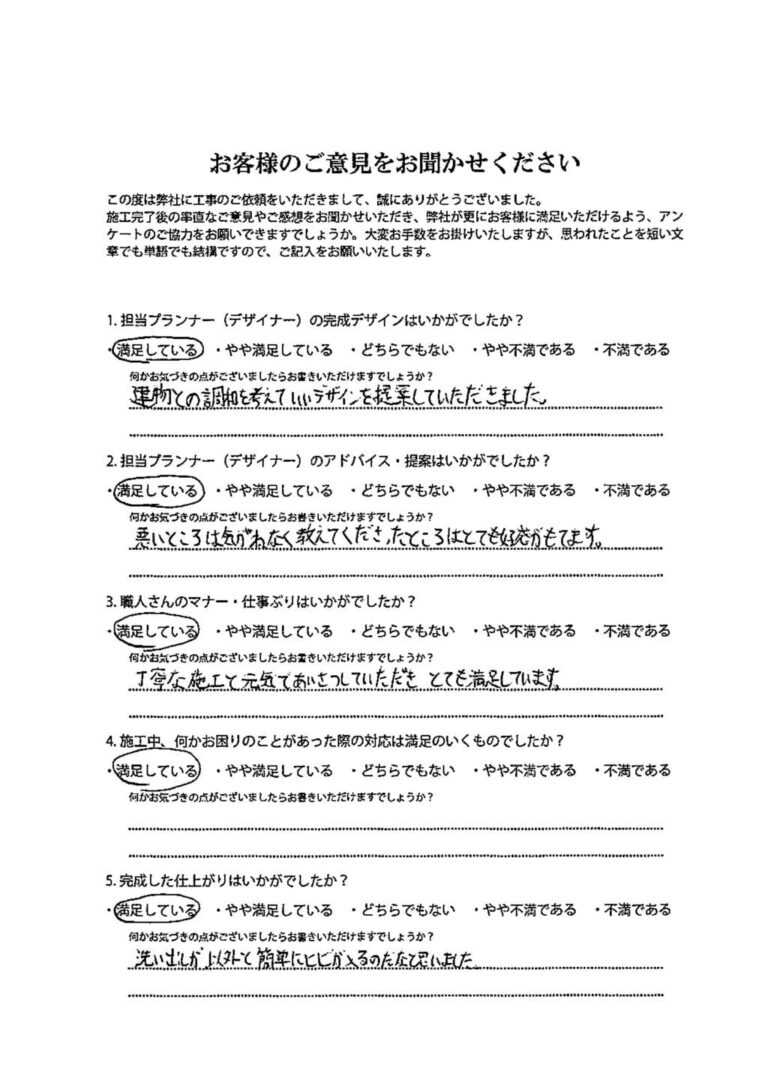 お客様のご意見をお聞かせください
この度は弊社に工事のご依頼をいただきまして、誠にありがとうございました。
施工完了後の率直なご意見やご感想をお聞かせいただき、弊社が更にお客様に満足いただけるよう、アン
ケートのご協力をお願いできますでしょうか。大変お手数をお掛けいたしますが、思われたことを短い文
章でも単語でも結構ですので、ご記入をお願いいたします。
1. 担当プランナー（デザイナー）の完成デザインはいかがでしたか？
・満足している ・やや満足している ・どちらでもない ・やや不満である ・不満である
何かお気づきの点がございましたらお書きいただけますでしょうか？
建物との調和を考えていいデザインを提案していただきました。
2. 担当プランナー（デザイナー）のアドバイス・提案はいかがでしたか？
・満足している ・やや満足している ・どちらでもない ・やや不満である ・不満である
何かお気づきの点がございましたらお書きいただけますでしょうか？
悪いところは気がねなく教えてくださったところはとても好感がもてます。
3. 職人さんのマナー・仕事ぶりはいかがでしたか？
・満足している ・やや満足している ・どちらでもない ・やや不満である ・不満である
何かお気づきの点がございましたらお書きいただけますでしょうか？
丁寧な施工と元気であいさつしていただき とても満足しています。
4. 施工中、何かお困りのことがあった際の対応は満足のいくものでしたか？
・満足している ・やや満足している ・どちらでもない ・やや不満である ・不満である
何かお気づきの点がございましたらお書きいただけますでしょうか？
5. 完成した仕上がりはいかがでしたか？
・満足している ・やや満足している ・どちらでもない ・やや不満である ・不満である
何かお気づきの点がございましたらお書きいただけますでしょうか？
洗い出しが 以外と 簡単にヒビが入るのだなと思いました